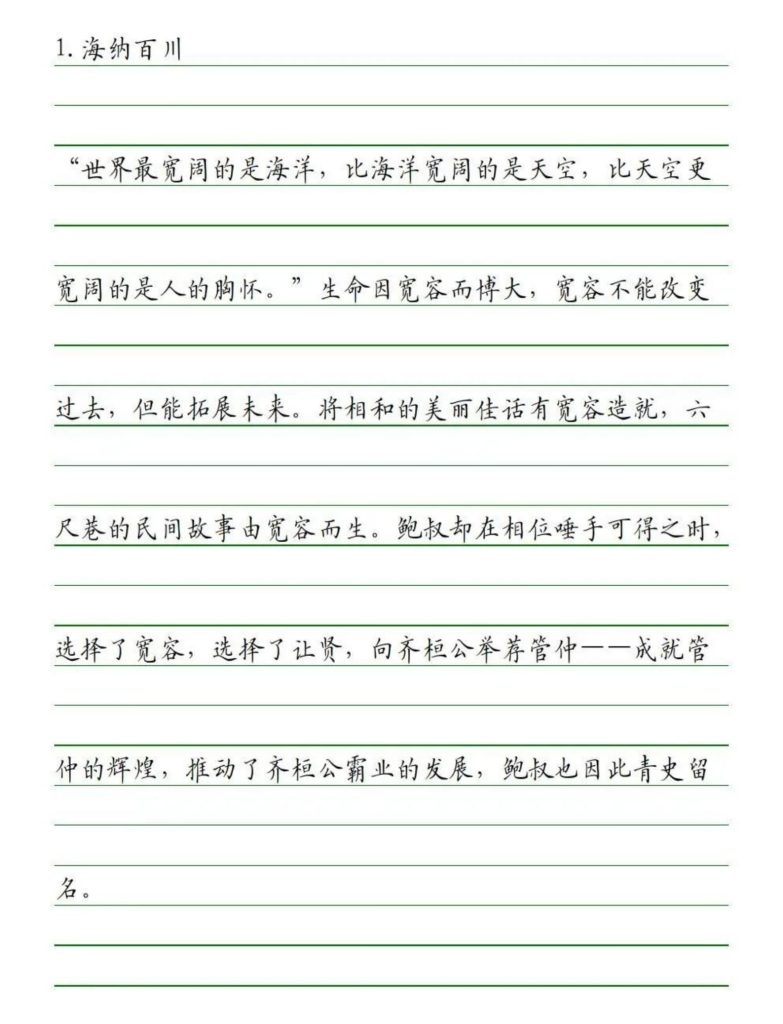 1. 海纳百川
“世界最宽阔的是海洋，比海洋宽阔的是天空，比天空更
宽阔的是人的胸怀。”生命因宽容而博大，宽容不能改变
过去，但能拓展未来。将相和的美丽佳话有宽容造就，六
尺巷的民间故事由宽容而生。鲍叔却在相位唾手可得之时，
选择了宽容，选择了让贤，向齐桓公举荐管仲——成就管
仲的辉煌，推动了齐桓公霸业的发展，鲍叔也因此青史留
名。